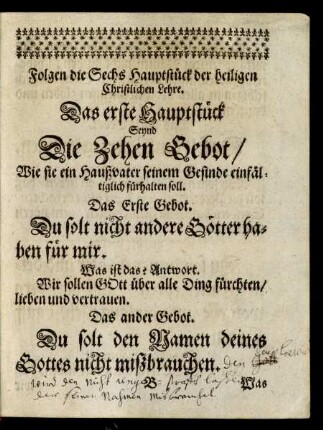 Folgen die Sechs Hauptstück der heiligen
Christlichen Lehre.
Das erste Hauptstück
Seynd
Die Zehen Gebot/
Wie sie ein Haußvater seinem Gesinde einfäl-
tiglich fürhalten soll.
Das Erste Gebot.
Du solt nicht andere Götter ha-
ben für mir.
Was ist das? Antwort.
Wir sollen GOtt über alle Ding fürchten/
lieben und vertrauen.
Das ander Gebot.
Du solt den Namen deines
Gottes nicht mißbrauchen. den
wird den nicht
B Was
der seinen Nahmen Misbrauchet